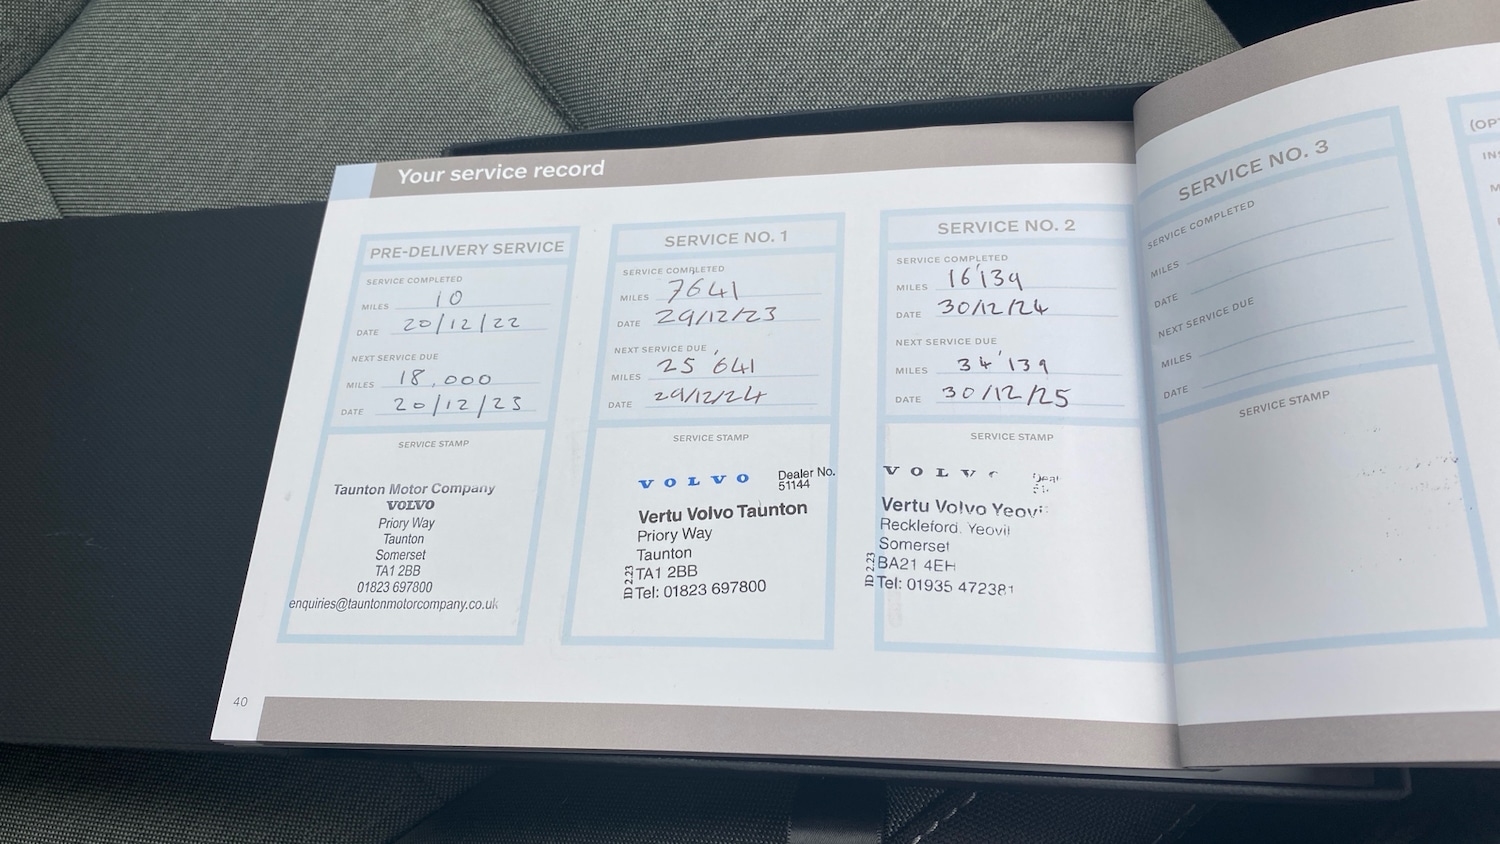 Your service record
PRE-DELIVERY SERVICE
SERVICE COMPLETED
MILES 10
DATE 20/12/22
NEXT SERVICE DUE
MILES 18,000
DATE 20/12/23
SERVICE STAMP
Taunton Motor Company
VOLVO
Priory Way
Taunton
Somerset
TA1 2BB
01823 697800
enquiries@tauntonmotorcompany.co.uk
SERVICE NO. 1
SERVICE COMPLETED
MILES 7641
DATE 29/12/23
NEXT SERVICE DUE
MILES 25'641
DATE 29/12/24
SERVICE STAMP
VOLVO Dealer No.
51144
Vertu Volvo Taunton
Priory Way
Taunton
TA1 2BB
Tel: 01823 697800
ID 2.23
SERVICE NO. 2
SERVICE COMPLETED
MILES 16'139
DATE 30/12/24
NEXT SERVICE DUE
MILES 34'139
DATE 30/12/25
SERVICE STAMP
VOLVO
Vertu Volvo Yeovi
Reckleford. Yeovil
Somerset
BA21 4EH
Tel: 01935 472381
ID 2.23
SERVICE NO. 3
SERVICE COMPLETED
MILES
DATE
NEXT SERVICE DUE
MILES
DATE
SERVICE STAMP
(OP
IN
M
40